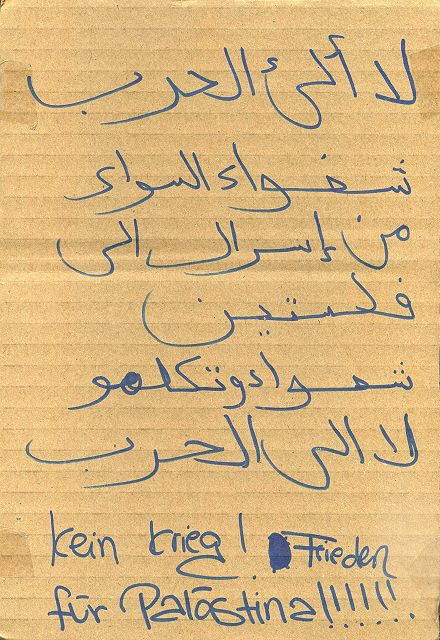 لا ألى الحرب
شفواء السواء
من إسرال الى
فلستين
شعوادوتكلمو
لا الى الحرب
kein krieg! Frieden
für Palästina!!!!!!